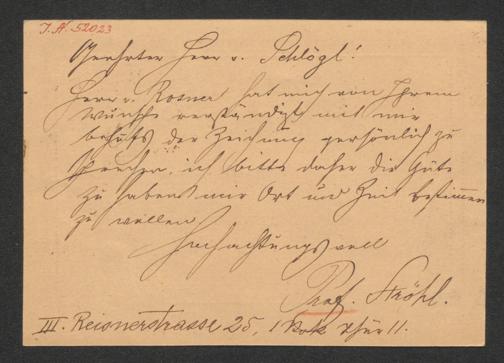 I. N. 52023
Geehrter Herr v. Schlögl!
Herr v. Rosner hat mich von Ihrem
Wunsche verständigt mit mir
behufs der Zeichnung persönlich zu
sprechen, ich bitte daher die Güte
zu haben mir Ort und Zeit bestimmen
zu wollen
Hochachtungsvoll
Prof. Ströhl.
III. Reisnerstrasse 25, 1. Thür 11.